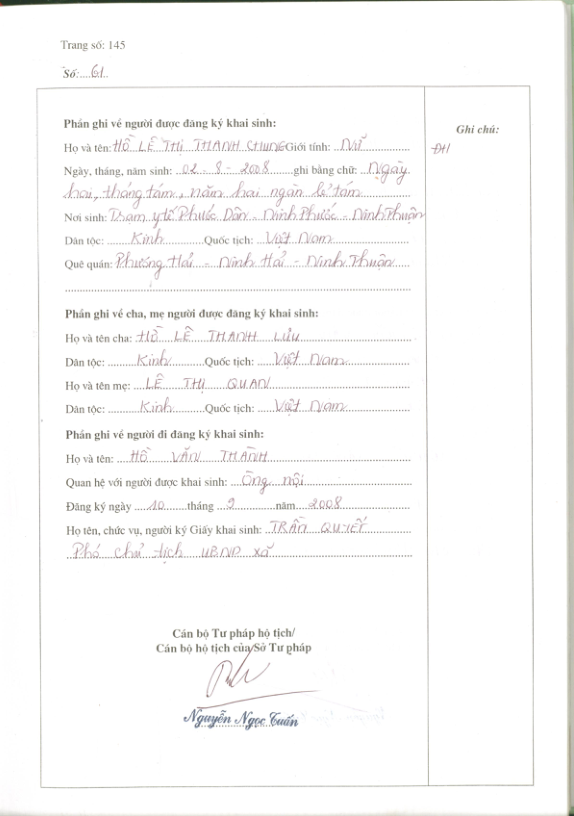 Trang số: 145
Số:....61..
Phần ghi về người được đăng ký khai sinh:
Ghi chú:
Họ và tên: HỒ LÊ THỊ THANH CHUNG Giới tính: ..Nữ..........
ĐH
Ngày, tháng, năm sinh: ..02 - 8 - 2008......ghi bằng chữ: ..Ngày.
hai, tháng tám, năm hai ngàn lẻ tám
Nơi sinh: Trạm y tế Phước Dân - Ninh Phước - Ninh Thuận
Dân tộc: ........Kinh............Quốc tịch: ...Việt Nam..........
Quê quán: Phương Hải - Ninh Hải - Ninh Thuận.....
Phần ghi về cha, mẹ người được đăng ký khai sinh:
Họ và tên cha: HỒ LÊ THANH LƯU
Dân tộc: .........Kinh..........Quốc tịch: .....Việt Nam..........
Họ và tên mẹ: LÊ THỊ QUAN
Dân tộc: .........Kinh..........Quốc tịch: .....Việt Nam..........
Phần ghi về người đi đăng ký khai sinh:
Họ và tên: ....HỒ VĂN THÀNH
Quan hệ với người được khai sinh: ...Ông nội..........
Đăng ký ngày ....10......tháng ...9..........năm ...2008..........
Họ tên, chức vụ, người ký Giấy khai sinh: ..TRẦN QUYẾT
..Phó chủ tịch UBND xã..........
Cán bộ Tư pháp hộ tịch/
Cán bộ hộ tịch của Sở Tư pháp
Nguyễn Ngọc Tuấn